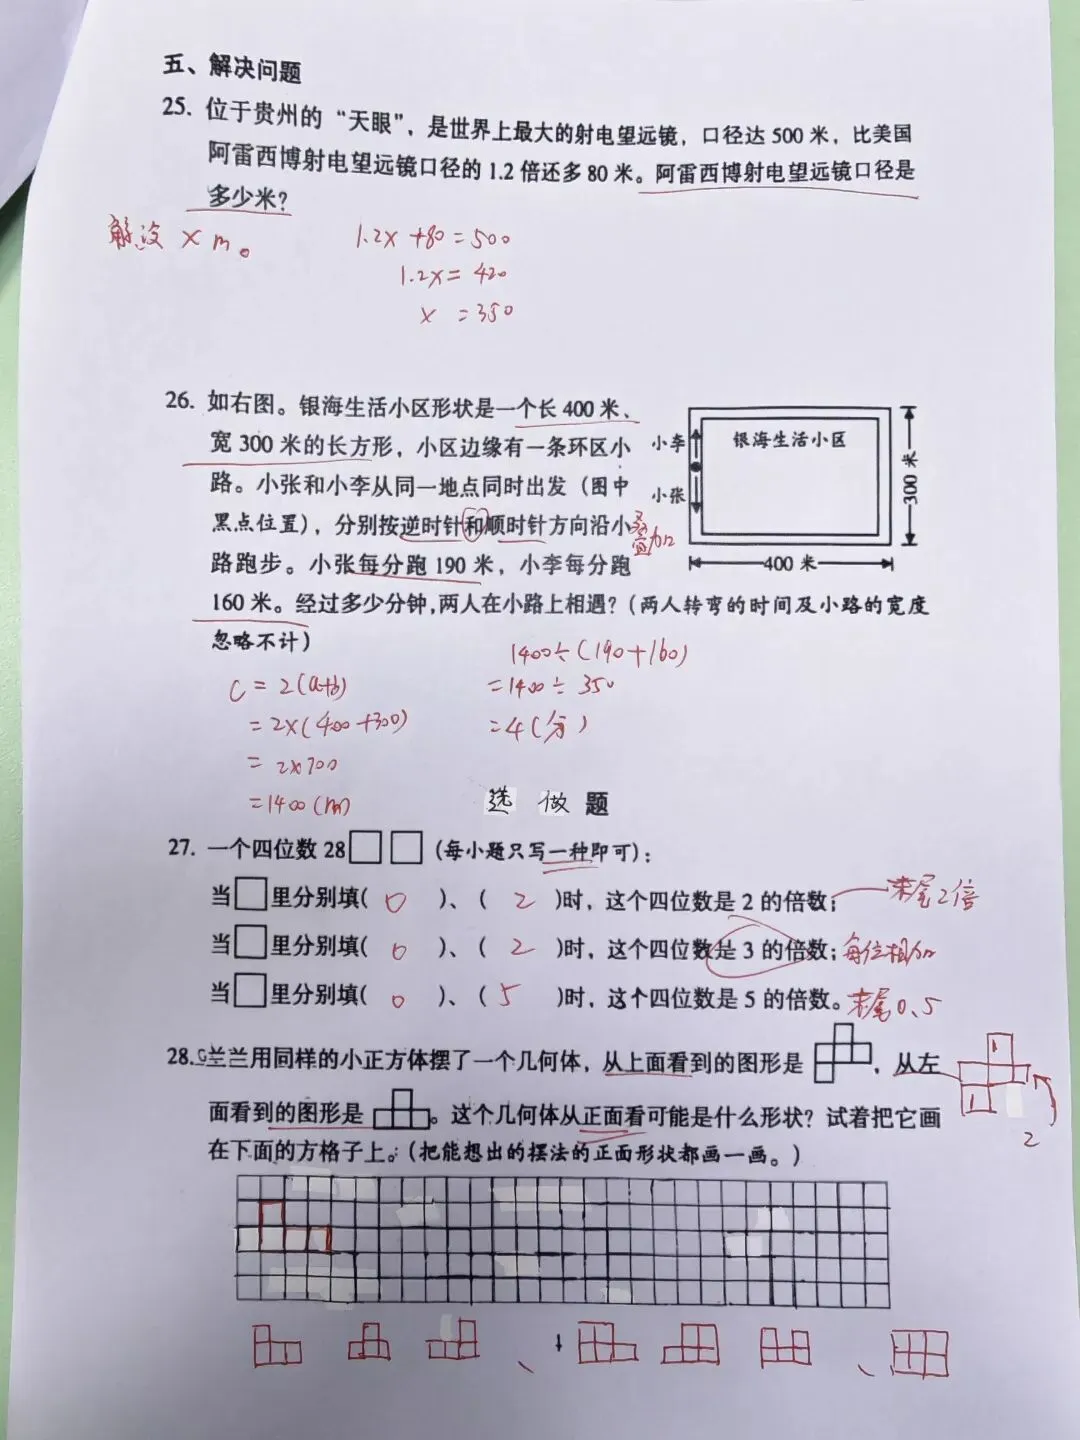 五、解决问题
25. 位于贵州的“天眼”，是世界上最大的射电望远镜，口径达 500 米，比美国
阿雷西博射电望远镜口径的 1.2 倍还多 80 米。阿雷西博射电望远镜口径是
多少米？
解设 x m。 1.2x +80 = 500
1.2x = 420
x = 350
26. 如右图。银海生活小区形状是一个长 400 米、
宽 300 米的长方形，小区边缘有一条环区小
路。小张和小李从同一地点同时出发（图中
黑点位置），分别按逆时针和顺时针方向沿小
路跑步。小张每分跑 190 米，小李每分跑
160 米。经过多少分钟，两人在小路上相遇？（两人转弯的时间及小路的宽度
忽略不计）
小李
小张
银海生活小区
300 米
400 米
叠加
C = 2(a+b)
= 2×(400+300)
= 2×700
=1400(m)
1400÷(190+160)
=1400÷350
=4(分)
选 做 题
27. 一个四位数 28□□（每小题只写一种即可）：
当□里分别填( 0 )、( 2 )时，这个四位数是 2 的倍数； 末尾2倍
当□里分别填( 0 )、( 2 )时，这个四位数是 3 的倍数； 每位相加
当□里分别填( 0 )、( 5 )时，这个四位数是 5 的倍数。 末尾0、5
28. 兰兰用同样的小正方体摆了一个几何体，从上面看到的图形是 ，从左
面看到的图形是 。这个几何体从正面看可能是什么形状？试着把它画
在下面的方格子上。（把能想出的摆法的正面形状都画一画。）
1
1
2